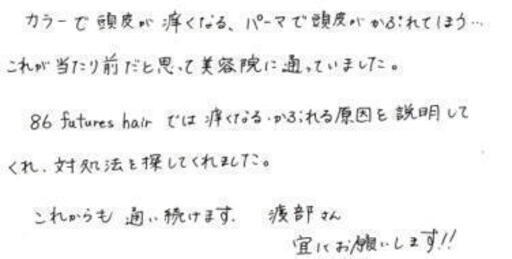 カラーで頭皮が痒くなる、パーマで頭皮がかぶれてしまう…
これが当たり前だと思って美容院に通っていました。
86 futures hair では痒くなる・かぶれる原因を説明して
くれ、対処法を探してくれました。
これからも通い続けます。 渡部さん
宜しくお願いします!!